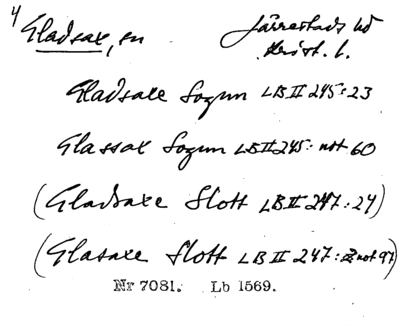 4
Gladsax, sn Järrestads hd
Krist. l.
Gladsaxe Sognn LB II 245:23
Glassax Sognn LB II 245: not 60
(Gladsaxe Slott LB II 247:24)
(Glasaxe Slott LB II 247: not 97)
Nr 7081. Lb 1569.